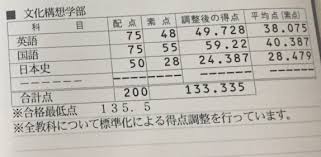 ■ 文化構想学部
科 目 配 点 素 点 調整後の得点 平均点(素点)
英語 75 48 49.728 38.075
国語 75 55 59.22 40.387
日本史 50 28 24.387 28.479
合計点 200 133.335
※合格最低点 135.5
※全教科について標準化による得点調整を行っています。